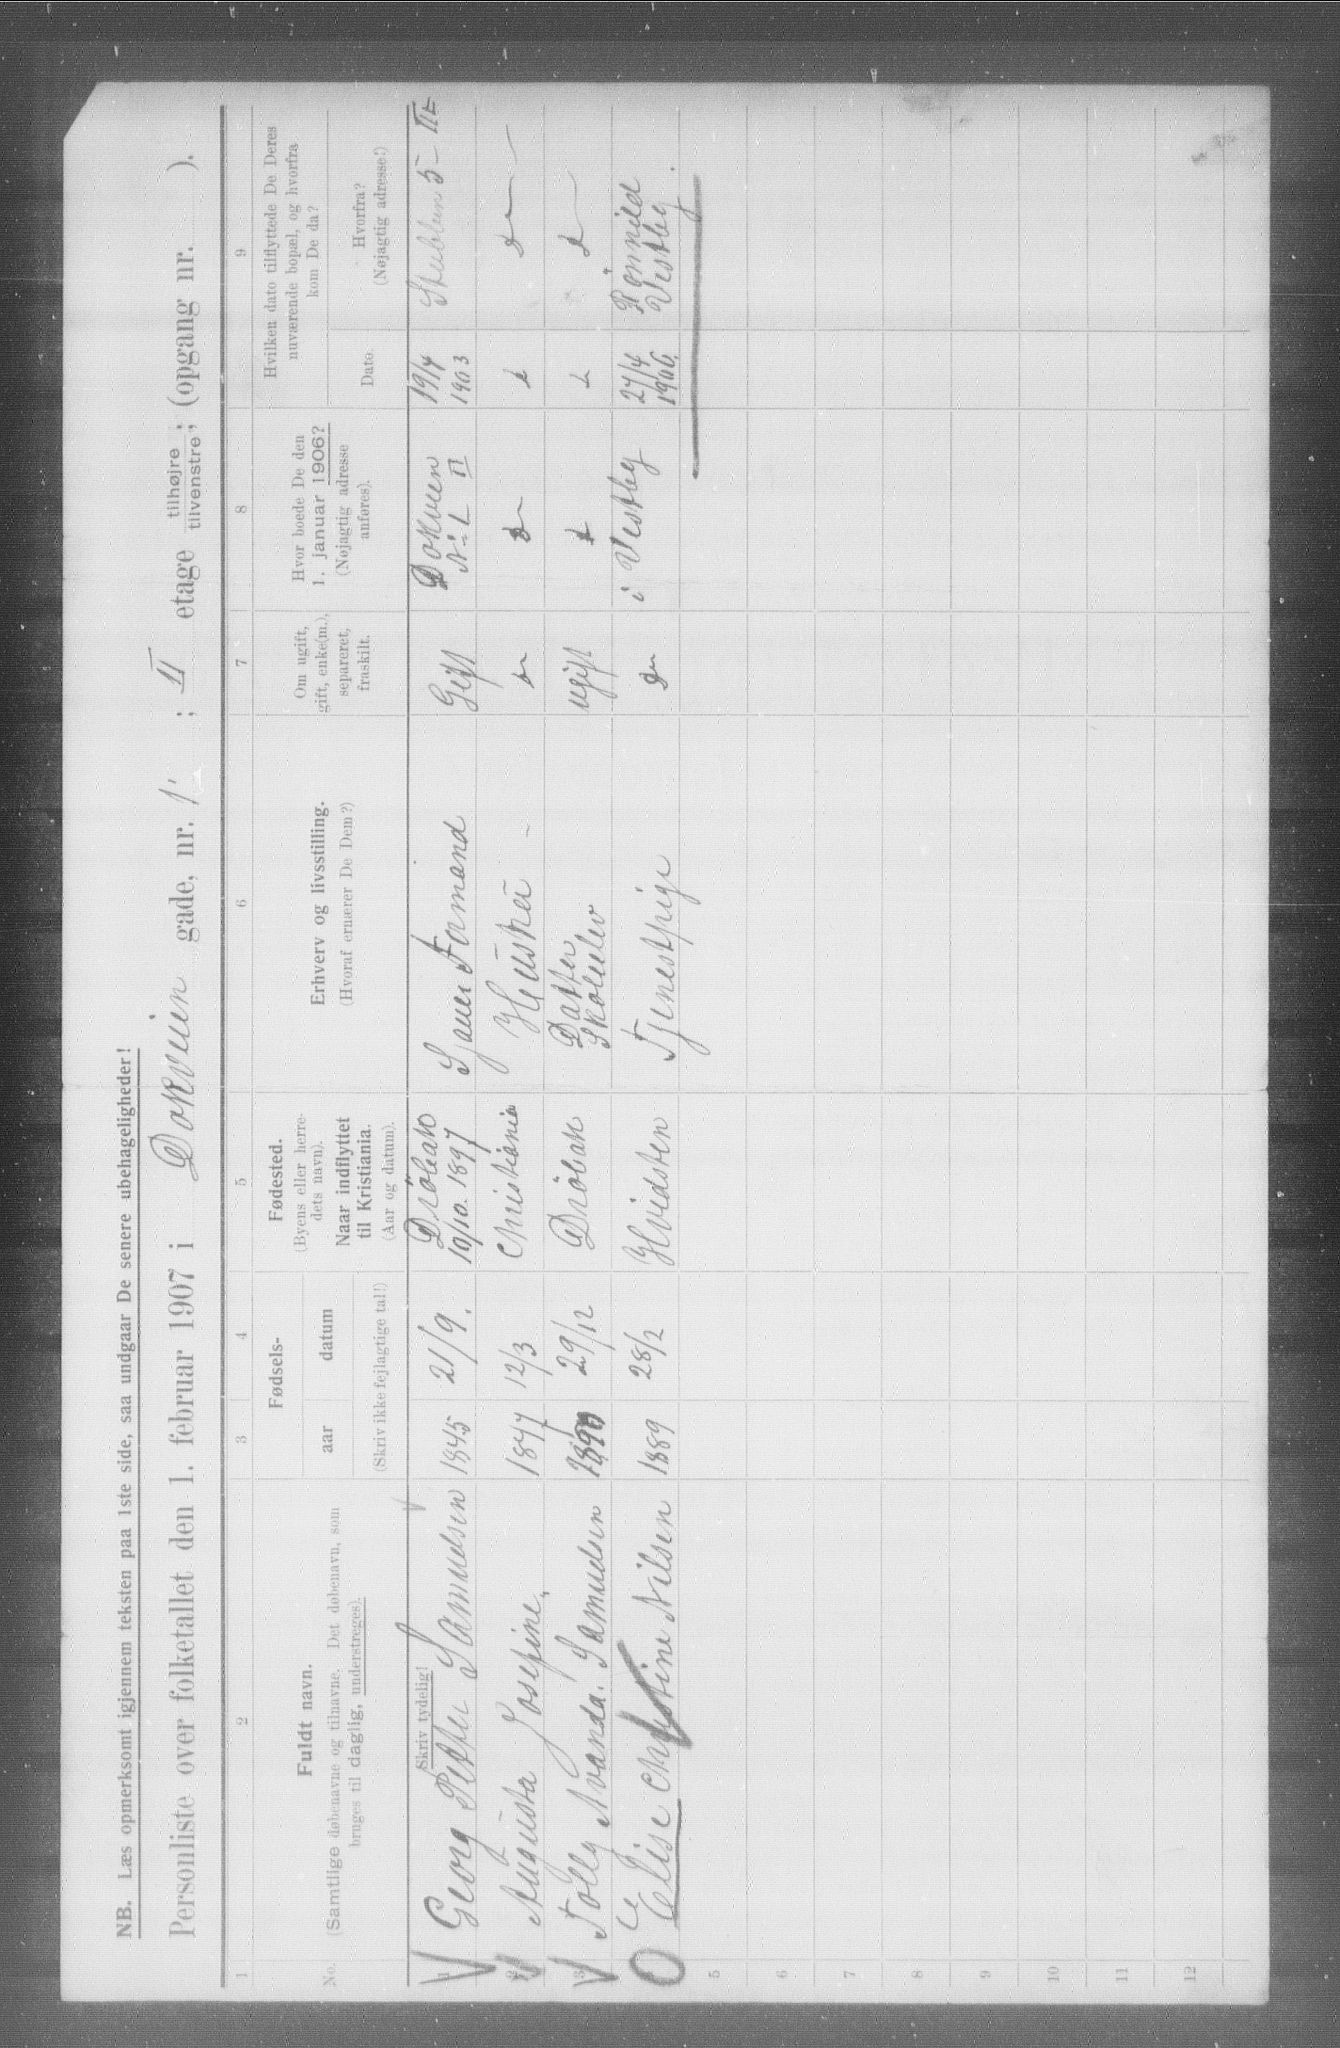 NB. Læs opmerksomt igjennem teksten paa 1ste side, saa undgaar De senere ubehageligheder!
Personliste over folketallet den 1. februar 1907 i Dokveien gade, nr. 1; II etage tilhøjre tilvenstre; (opgang nr. ).
1 2 3 4 5 6 7 8 9
No.
Fuldt navn.
(Samtlige døbenavne og tilnavne. Det døbenavn, som
bruges til daglig, understreges).
Skriv tydelig!
Fødsels-
aar datum
(Skriv ikke fejlagtige tal!)
Fødested.
(Byens eller herre-
dets navn).
Naar indflyttet
til Kristiania.
(Aar og datum).
Erhverv og livsstilling.
(Hvoraf ernærer De Dem?)
Om ugift,
gift, enke(m.),
separeret,
fraskilt.
Hvor boede De den
1. januar 1906?
(Nøjagtig adresse
anføres).
Hvilken dato tilflyttede De Deres
nuværende bopæl, og hvorfra
kom De da?
Dato.
Hvorfra?
(Nøjagtig adresse!)
1 Georg Petter Samuelsen 1845 21/9. Drøbak 10/10. 1897 Sjauer Formand Gift Dokveien No 1 II 19/4 1903 5 III
2 Augusta Josefine, 1847 12/3 Christiania Hustru do do
3 Samuelsen 1890 29/12 Drøbak Datter Skoleelev ugift
4 Elise Christine Nilsen 1889 28/2 Hvidsten Tjenestpige do i Vestby 27/4 1906. Vestby.
5
6
7
8
9
10
11
12